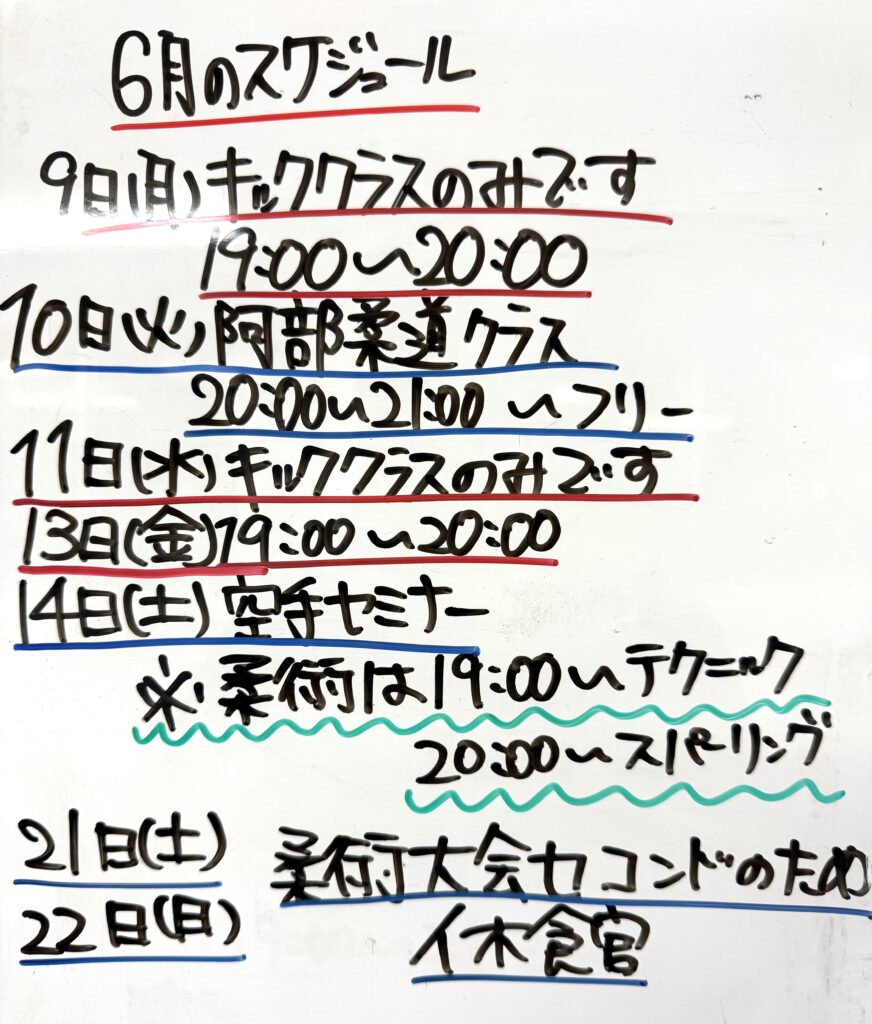 6月のスケジュール
9日(月)キッククラスのみです
19:00〜20:00
10日(火)阿部柔道クラス
20:00〜21:00 〜フリー
11日(水)キッククラスのみです
13日(金)19:00〜20:00
14日(土)空手セミナー
※柔術は19:00〜テクニック
20:00〜スパーリング
21日(土) 柔術大会セコンドのため
22日(日) 休館